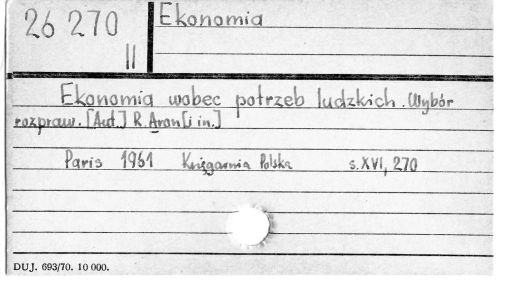 26 270
II
Ekonomia
Ekonomia wobec potrzeb ludzkich. Wybór
rozpraw. [Aut.] R. Aron [i in.]
Paris 1961 Księgarnia Polska s. XVI, 270
DUJ. 693/70. 10 000.